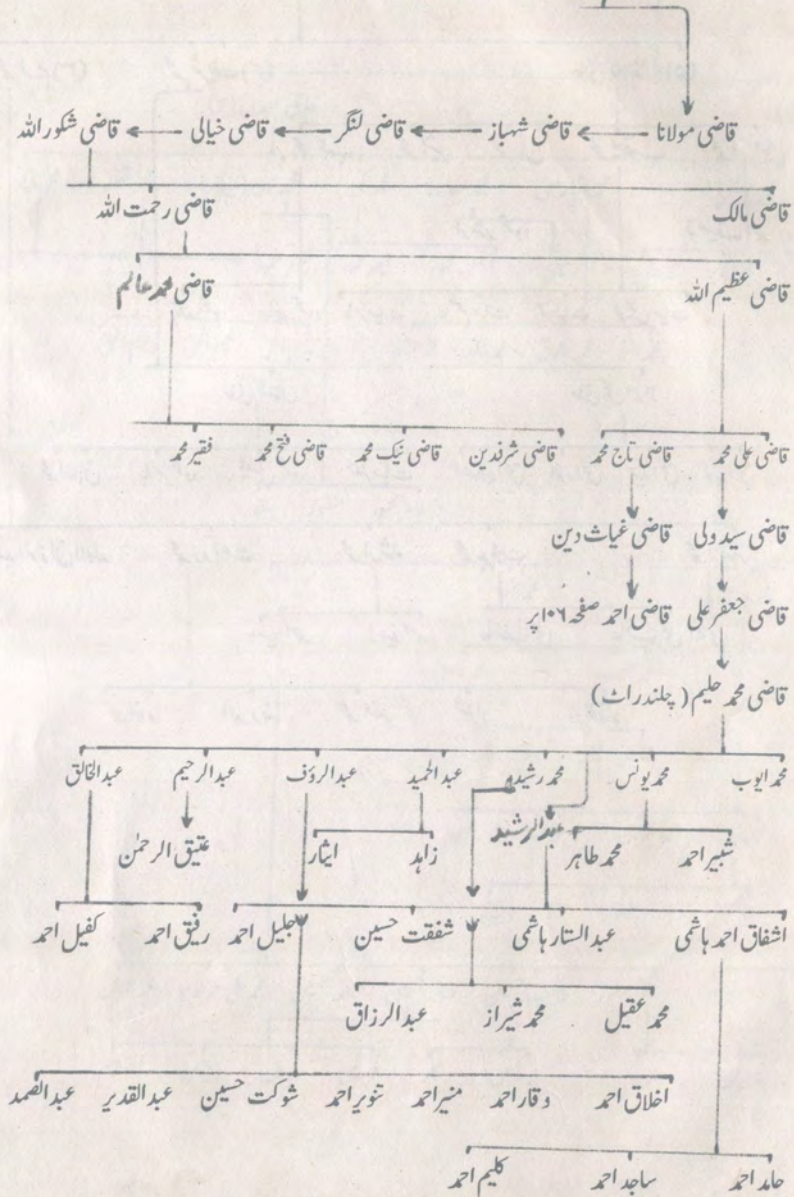 قاضی مولانا قاضی شہباز قاضی لنگر قاضی خیالی قاضی شکور اللہ
قاضی مالک قاضی رحمت اللہ
قاضی عظیم اللہ قاضی محمد عالم
قاضی علی محمد قاضی تاج محمد قاضی شرفدین قاضی نیک محمد قاضی فتح محمد فقیر محمد
قاضی سید ولی قاضی غیاث دین
قاضی جعفر علی قاضی احمد صفحہ ۱۰۶ پر
قاضی محمد حلیم (چلندراٹ)
محمد ایوب محمد یونس محمد رشید عبدالحمید عبدالرؤف عبدالرحیم عبدالخالق
شبیر احمد محمد طاہر عبدالرشید زاہد ایثار عتیق الرحمٰن
اشفاق احمد ہاشمی عبدالستار ہاشمی شفقت حسین جلیل احمد رفیق احمد کفیل احمد
محمد عقیل محمد شیراز عبدالرزاق
اخلاق احمد وقار احمد منیر احمد تنویر احمد شوکت حسین عبدالقدیر عبدالصمد
حامد احمد ساجد احمد کلیم احمد